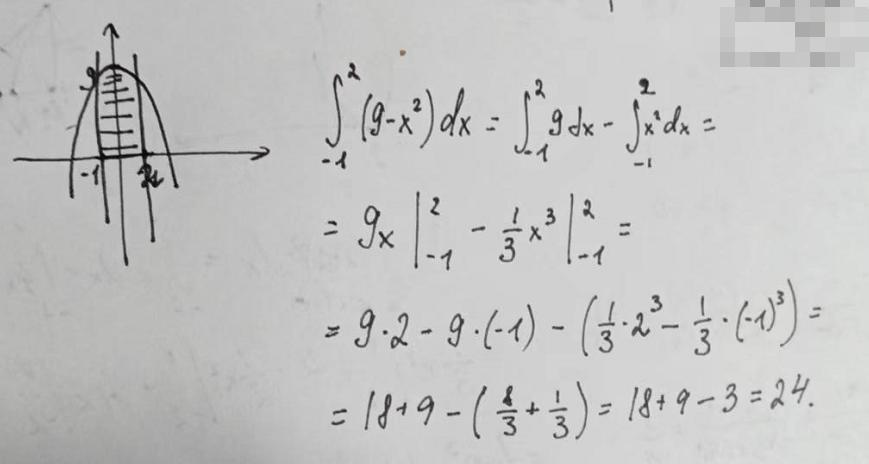 9
-1 2
∫₋₁² (9-x²) dx = ∫₋₁² 9 dx - ∫₋₁² x² dx =
= 9x |₋₁² - 1/3 x³ |₋₁² =
= 9·2 - 9·(-1) - (1/3·2³ - 1/3·(-1)³) =
= 18+9 - (8/3 + 1/3) = 18+9-3 = 24.